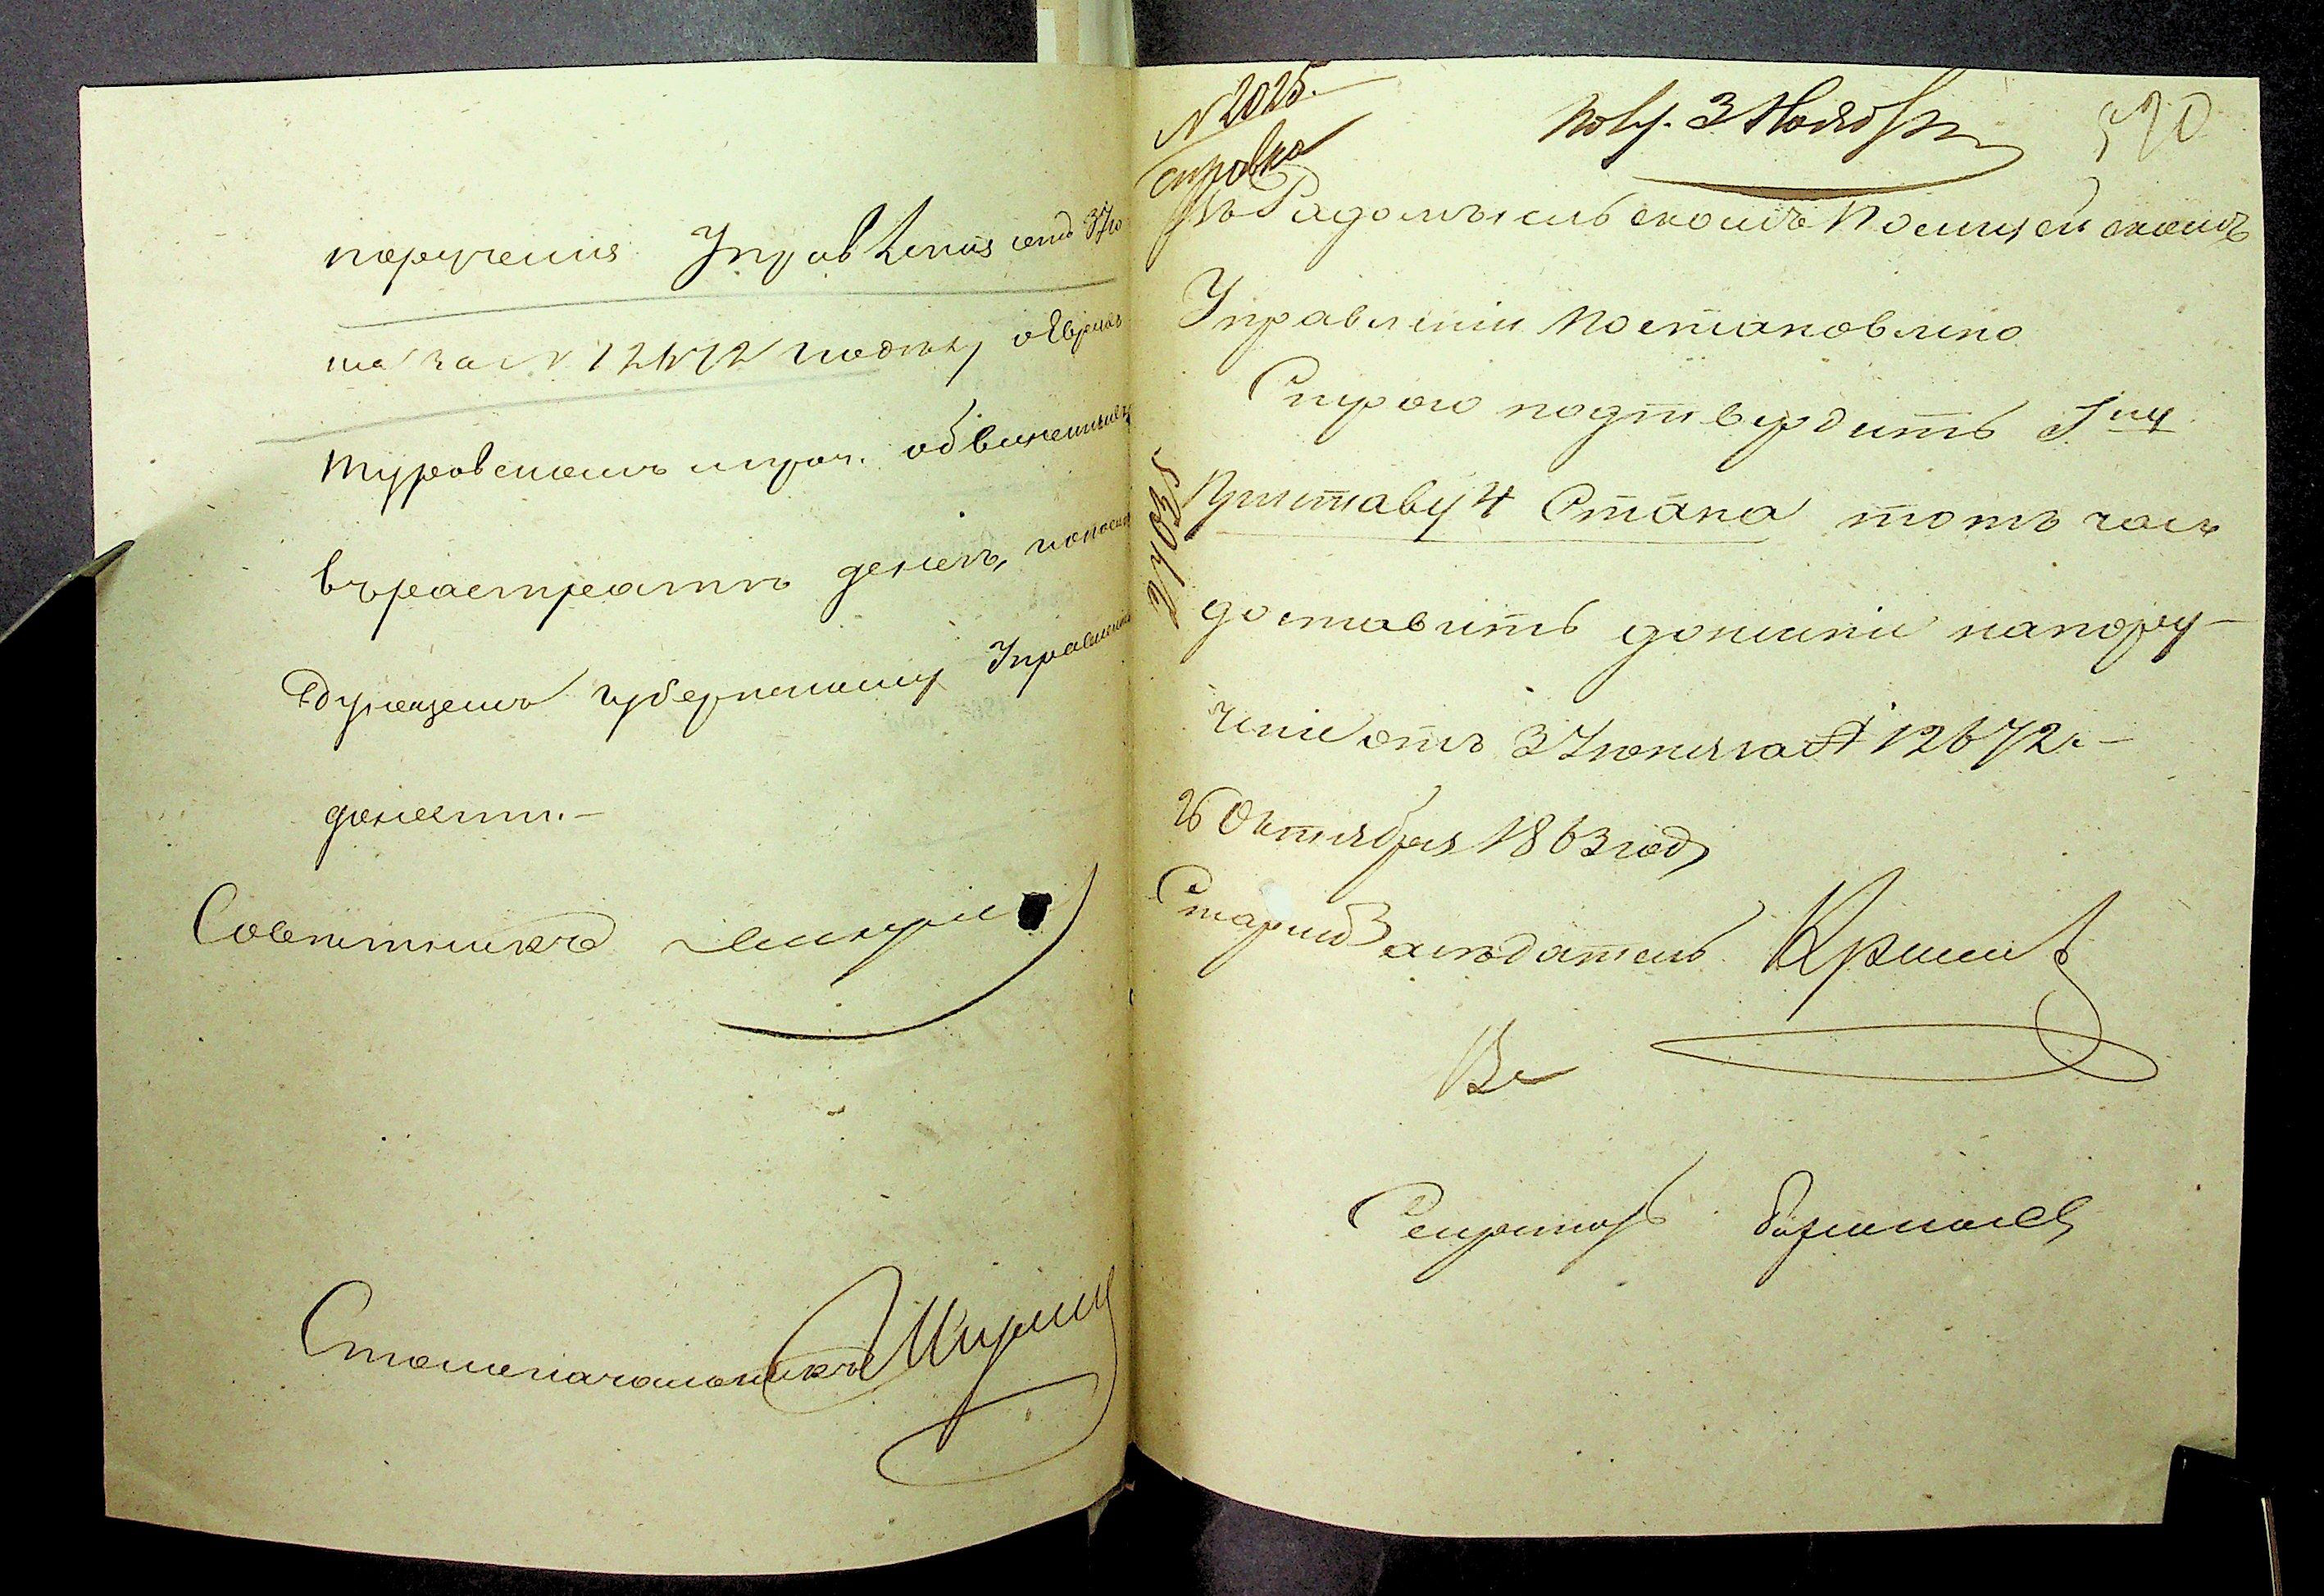 порученія Управленія отъ 3 Ію
ня за № 12672 по дѣлу о Евреѣ
Туровскомъ и проч. обвиняемыхъ
въ растратѣ денегъ, и о послѣ
дующемъ Губернскому Управленію
донести.–
Совѣтникъ
Столоначальникъ
№ 2025.
справка
Пол. 3 Ноября
570
Въ Радомысльскомъ Полицейскомъ
Управленіи постановлено
Строго подтвердить Гну
Приставу 4 Стана тотъ часъ
доставить донесеніе на пору–
ченіе отъ 3 Іюня за № 12672.–
26 Октября 1863 года
Старш Засѣдатель
Секретарь